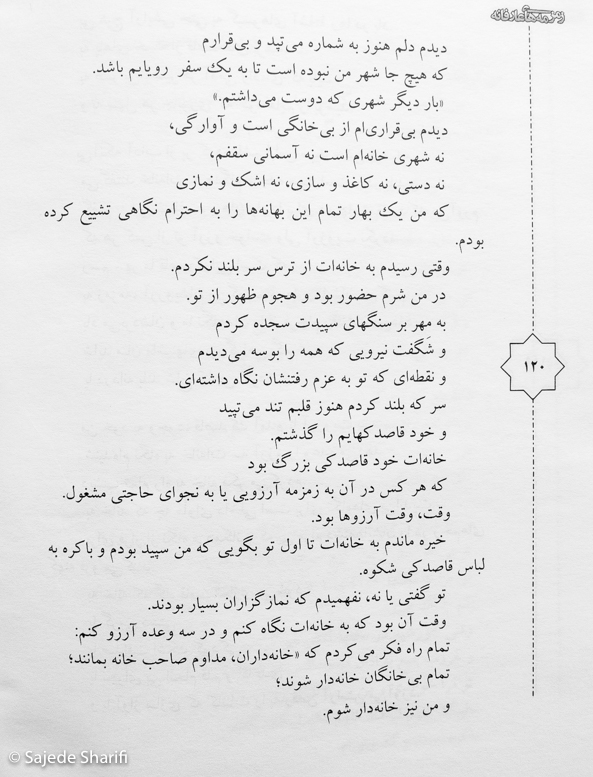 زمزمه‌های عارفانه
دیدم دلم هنوز به شماره می‌تپد و بی‌قرارم
که هیچ جا شهر من نبوده است تا به یک سفر رویایم باشد.
«بار دیگر شهری که دوست می‌داشتم.»
دیدم بی‌قراری‌ام از بی‌خانگی است و آوارگی،
نه شهری خانه‌ام است نه آسمانی سقفم،
نه دستی، نه کاغذ و سازی، نه اشک و نمازی
که من یک بهار تمام این بهانه‌ها را به احترام نگاهی تشییع کرده
بودم.
وقتی رسیدم به خانه‌ات از ترس سر بلند نکردم.
در من شرم حضور بود و هجوم ظهور از تو.
به مهر بر سنگهای سپیدت سجده کردم
و شَگفت نیرویی که همه را بوسه می‌دیدم
و نقطه‌ای که تو به عزم رفتنشان نگاه داشته‌ای.
سر که بلند کردم هنوز قلبم تند می‌تپید
و خود قاصدکهایم را گذشتم.
خانه‌ات خود قاصدکی بزرگ بود
که هر کس در آن به زمزمه آرزویی یا به نجوای حاجتی مشغول.
وقت، وقت آرزوها بود.
خیره ماندم به خانه‌ات تا اول تو بگویی که من سپید بودم و باکره به
لباس قاصدکی شکوه.
تو گفتی یا نه، نفهمیدم که نمازگزاران بسیار بودند.
وقت آن بود که به خانه‌ات نگاه کنم و در سه وعده آرزو کنم:
تمام راه فکر می‌کردم که «خانه‌داران، مداوم صاحب خانه بمانند؛
تمام بی‌خانگان خانه‌دار شوند؛
و من نیز خانه‌دار شوم.
۱۲۰
© Sajede Sharifi